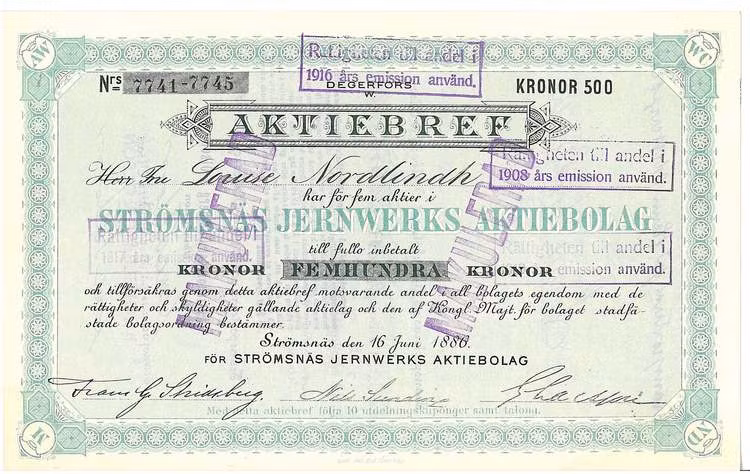 AW
WC
Rättigheten till andel i
1916 års emission använd.
Nrs 7741-7745
DEGERFORS
W.
KRONOR 500
AKTIEBREF
Rättigheten till andel i
1908 års emission använd.
Herr Fru Louise Nordlindh
har för fem aktier i
STRÖMSNÄS JERNWERKS AKTIEBOLAG
MAKULERAD
MAKULERAD
Rättigheten till andel i
1917 års emission använd.
Rättigheten till andel i
års emission använd.
till fullo inbetalt
KRONOR FEMHUNDRA KRONOR
och tillförsäkras genom detta aktiebref motsvarande andel i all bolagets egendom med de
rättigheter och skyldigheter gällande aktielag och den af Kongl. Majt. för bolaget stadfä-
stade bolagsordning bestämmer.
Strömsnäs den 16 Juni 1886.
FÖR STRÖMSNÄS JERNWERKS AKTIEBOLAG
Frans G. Stridsberg
Med detta aktiebref följa 10 utdelningskuponger samt talong.